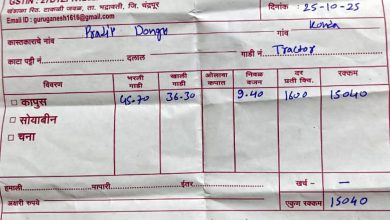 खंडाळा रिट. टाकळी जवळ, ता. भद्रावती, जि. चंद्रपूर
Email ID : guruganesh1616@gmail.com
दिनांक : 25-10-25
कास्तकाराचे नांव Pradip Dongre गांव Konda
काटा पट्टी नं. दलाल गाडी नं. Tractor
विवरण भरती गाडी खाली गाडी ओलावा कपात निव्वळ वजन दर प्रती क्विं. रक्कम
कापुस 45.70 36.30 9.40 1600 15040
सोयाबीन
चना
हमाली व्यापारी ईतर खर्च -
अक्षरी रुपये एकुण रक्कम 15040